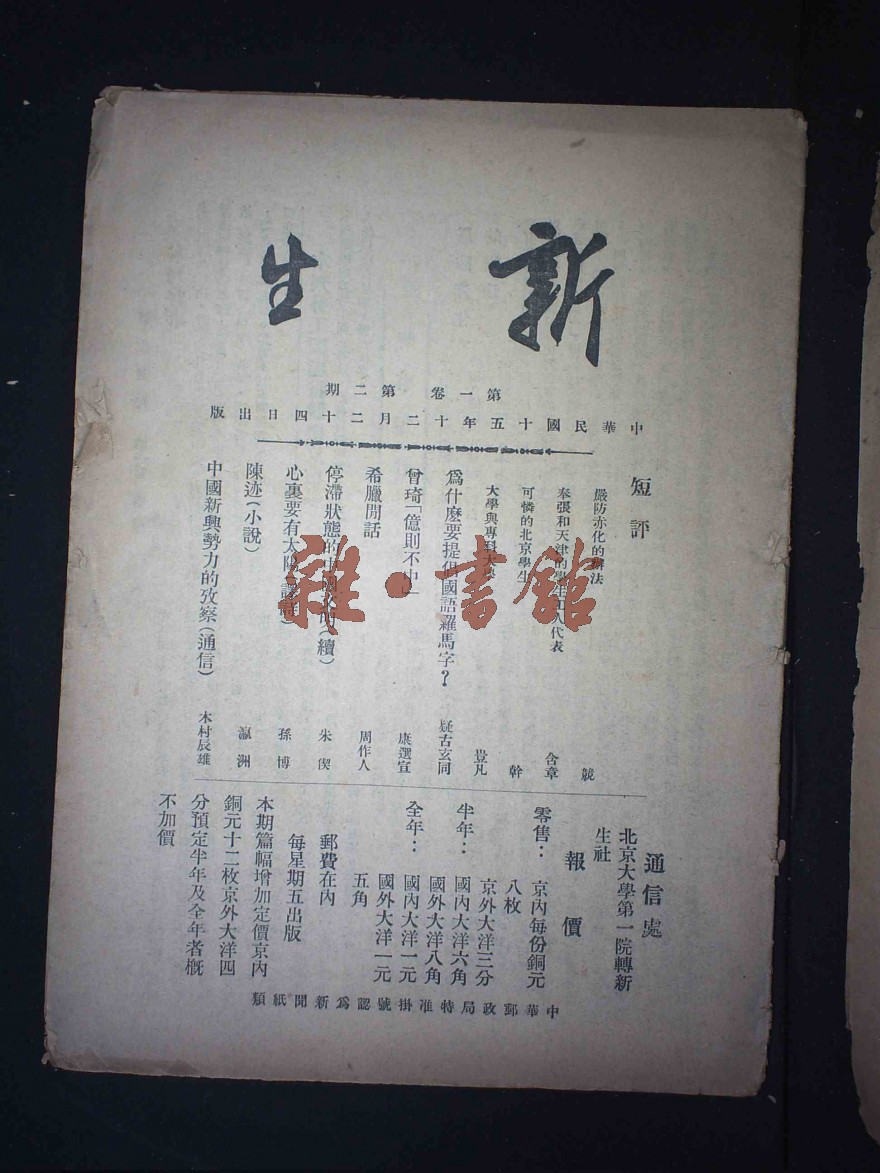 新生
第一卷 第二期
中華民國十五年十二月二十四日出版
短評
嚴防赤化的辦法 競
奉張和天津的學生工人代表 含章
可憐的北京學生 幹
大學與專科大學 豈凡
為什麽要提倡國語羅馬字? 疑古玄同
曾琦「億則不中」 康選宜
希臘閒話 周作人
停滯狀態的中國文明(續) 朱偰
心裏要有太陽(譯詩) 孫博
陳迹(小說) 瀛洲
中國新興勢力的攷察(通信) 木村辰雄
通信處
北京大學第一院轉新
生社
報價
零售: 京內每份銅元
八枚
京外大洋三分
半年: 國內大洋六角
國外大洋八角
全年: 國內大洋一元
國外大洋一元
五角
郵費在內
每星期五出版
本期篇幅增加定價京內
銅元十二枚京外大洋四
分預定半年及全年者概
不加價
中華郵政局特准掛號認為新聞紙類
雜·書館